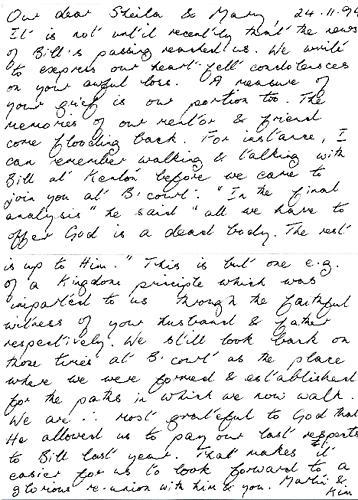 Our dear Sheila & Mary, 24.11.94
It is not until recently that the news
of Bill's passing reached us. We write
to express our heart-felt condolences
on your awful loss. A measure of
your grief is our portion too. The
memories of our mentor & friend
come flooding back. For instance, I
can remember walking & talking with
Bill at Kenton before we came to
join you at B'court. "In the final
analysis" he said "all we have to
offer God is a dead body. The rest
is up to Him." This is but one e.g.
of a Kingdom principle which was
imparted to us through the faithful
witness of your husband & father
respectively. We still look back on
those times at B'court as the place
where we were formed & established
for the paths in which we now walk.
We are ∴ most grateful to God that
He allowed us to pay our last respects
to Bill last year. That makes it
easier for us to look forward to a
glorious re-union with him & you. Martin &
Kim